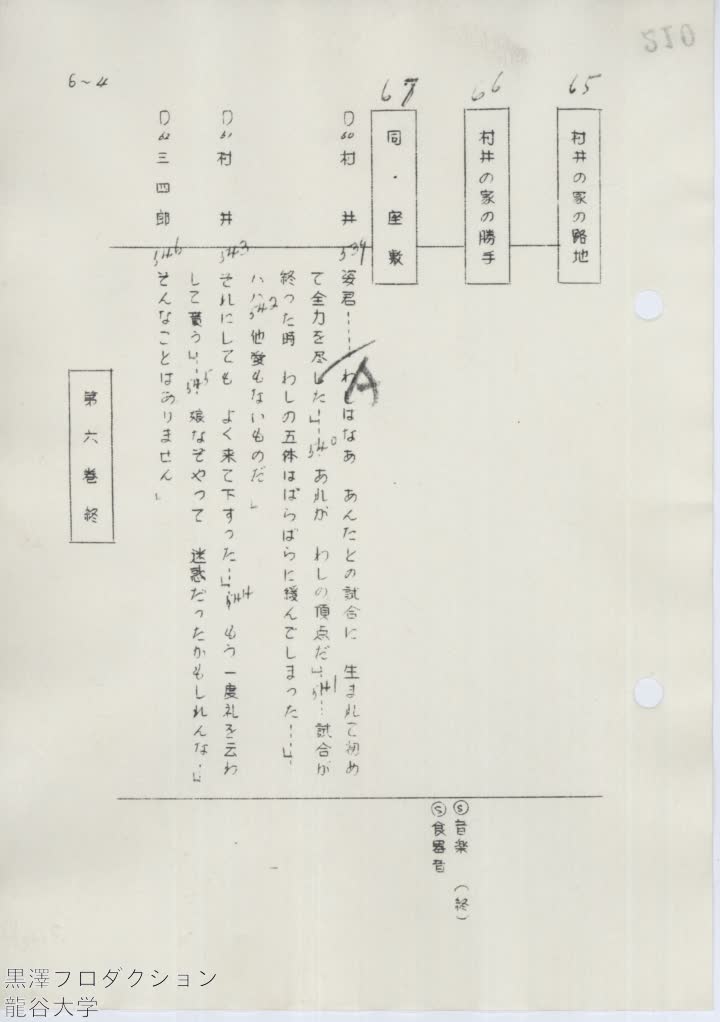 210
65
村井の家の路地
66
村井の家の勝手
67
同・座敷
Ⓢ音楽 （終）
Ⓢ食器音
D60 村井
539
姿君……わしはなあ あんたとの試合に 生まれて初め
て全力を尽した……540あれが わしの頂点だ……541試合が
終った時 わしの五体はばらばらに緩んでしまった……
ハハ542他愛もないものだ」
D61 村井
543
それにしても よく来て下すった……544もう一度礼を云わ
して貰う……545娘なぞやって 迷惑だったかもしれんな……
D62 三四郎
546
そんなことはありません」
A
6〜4
第六巻終
黒澤フロダクション
龍谷大学